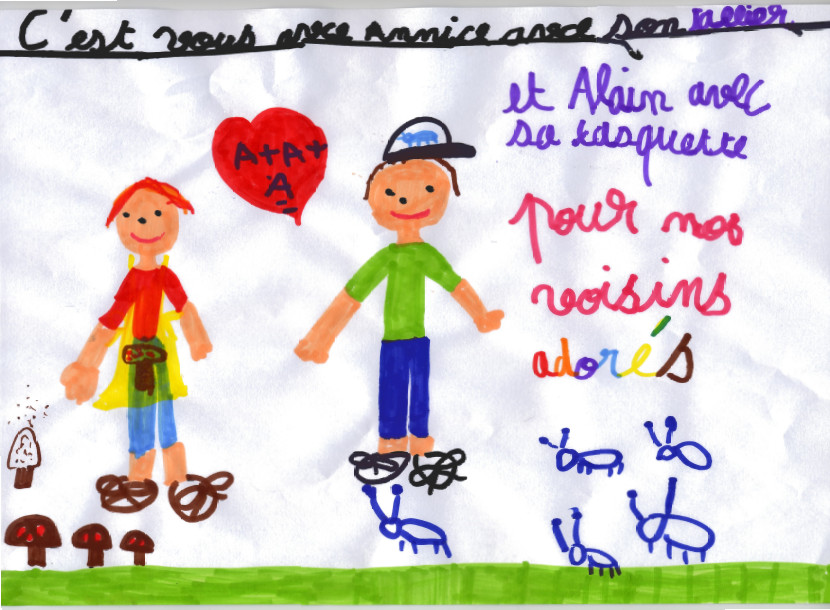 C'est vous avece Annice avece son tallier
et Alain avec
sa casquette
A+A+
A
pour nos
voisins
adorés